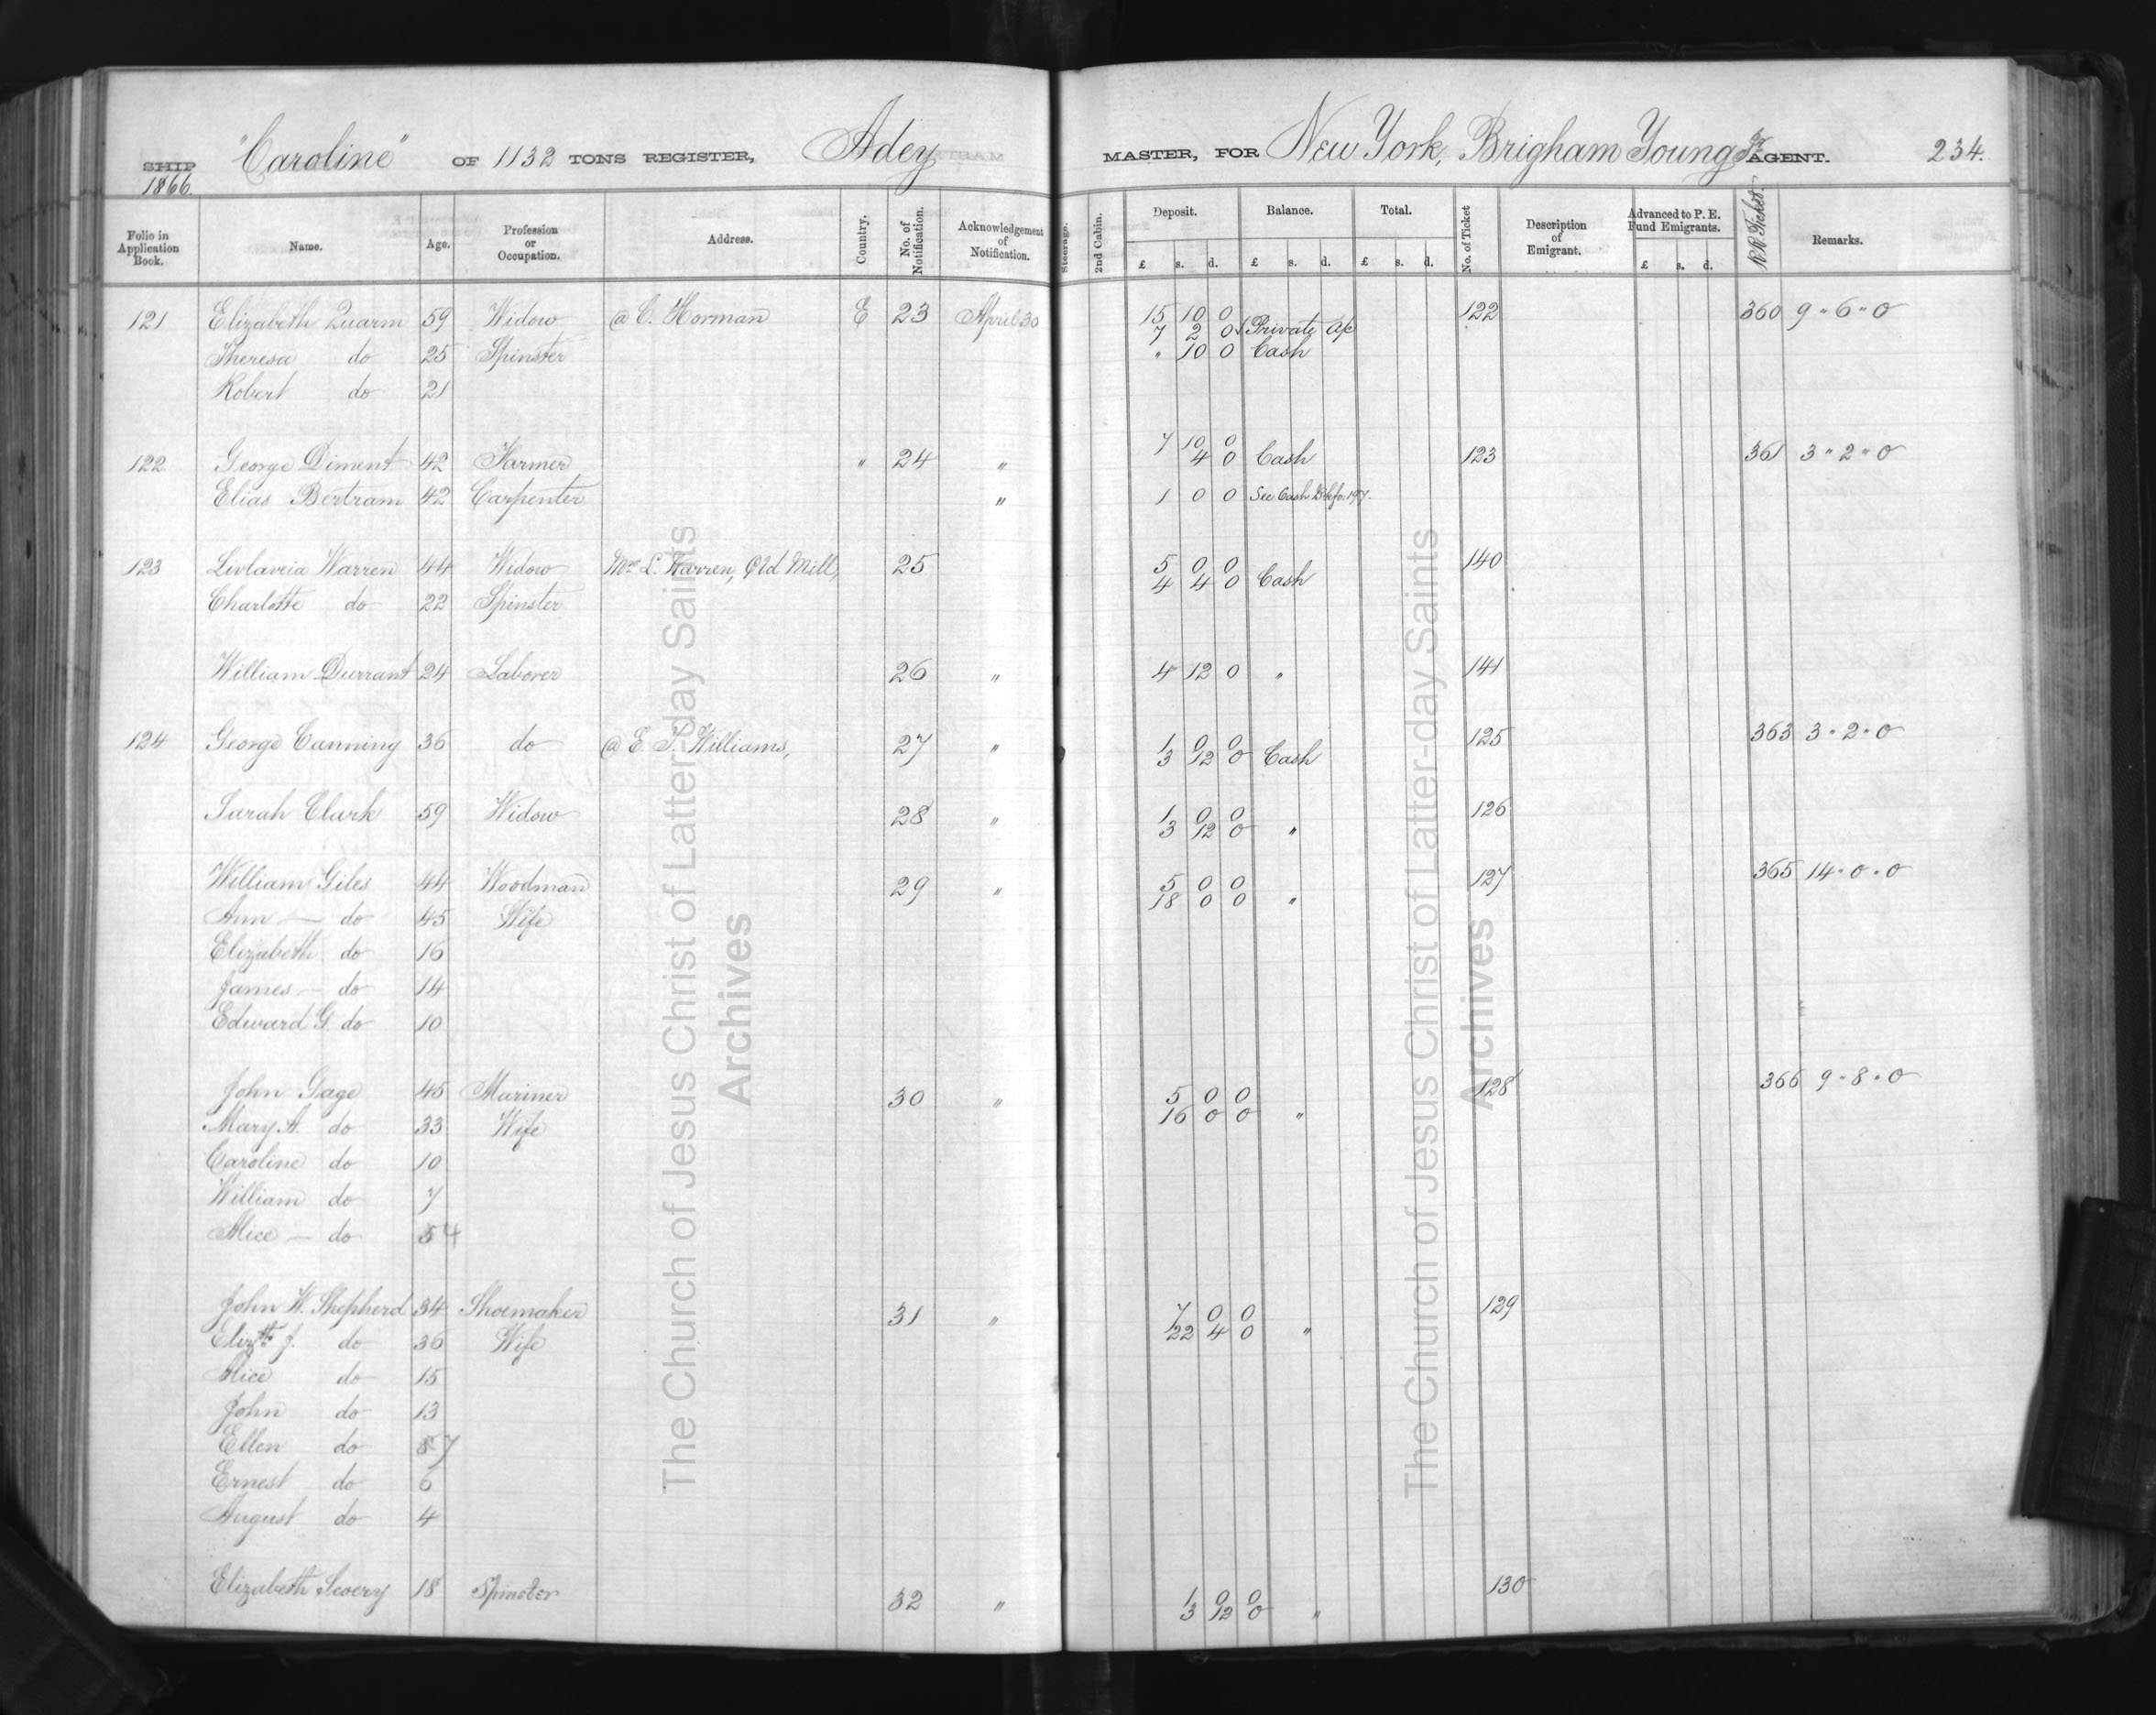 SHIP "Caroline" OF 1132 TONS REGISTER, Adey MASTER, FOR New York, Brigham Young Jr AGENT. 234.
1866.
Folio in Application Book. Name. Age. Profession or Occupation. Address. Country. No. of Notification. Acknowledgement of Notification. Steerage. 2nd Cabin. Deposit. £ s. d. Balance. £ s. d. Total. £ s. d. No. of Ticket Description of Emigrant. Advanced to P. E. Fund Emigrants. £ s. d. RR Ticket. Remarks.
121 Elizabeth Quarm 59 Widow @ C. Horman E 23 April 30 15 10 0 122 360 9 " 6 " 0
7 2 0 Private a/c
Theresa do 25 Spinster " 10 0 Cash
Robert do 21
7 10 0
122 George Diment 42 Farmer " 24 " 4 0 Cash 123 361 3 " 2 " 0
Elias Bertram 42 Carpenter " 1 0 0 See Cash Bk fo. 197.
123 Livlavia Warren 44 Widow Mrs L. Warren, Old Mill, 25 5 0 0 140
4 4 0 Cash
Charlotte do 22 Spinster
William Durrant 24 Laborer 26 " 4 12 0 " 141
124 George Canning 36 do @ E. T. Williams, 27 " 1 0 0 125 363 3 " 2 " 0
3 12 0 Cash
Sarah Clark 59 Widow 28 " 1 0 0 126
3 12 0 "
William Giles 44 Woodman 29 " 5 0 0 127 365 14 " 0 " 0
18 0 0 "
Ann — do 45 Wife
Elizabeth do 16
James — do 14
Edward G. do 10
John Gage 45 Mariner 30 " 5 0 0 128 366 9 " 8 " 0
16 0 0 "
Mary A. do 33 Wife
Caroline do 10
William do 7
Alice — do 5 4
John W. Shepherd 34 Shoemaker 31 " 7 0 0 129
22 4 0 "
Elizth J. do 36 Wife
Alice do 15
John do 13
Ellen do 8 7
Ernest do 6
August do 4
Elizabeth Scovey 18 Spinster 32 " 1 0 0 130
3 12 0 "
The Church of Jesus Christ of Latter-day Saints
Archives
The Church of Jesus Christ of Latter-day Saints
Archives